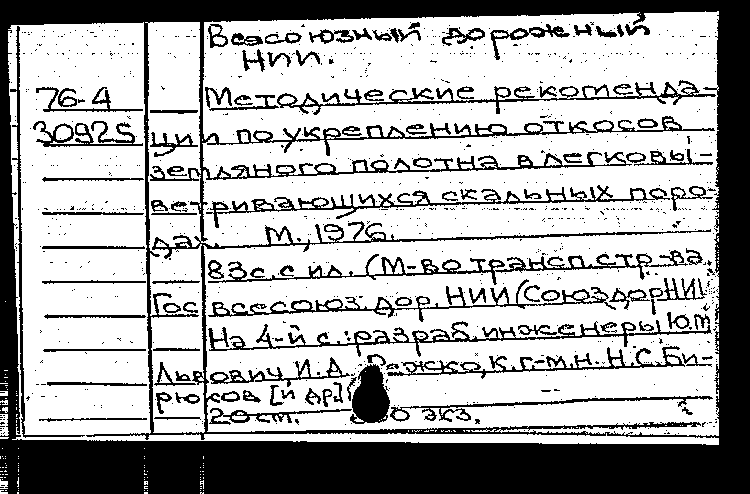 Всесоюзный дорожный
НИИ.
76-4 Методические рекоменда-
30925 ции по укреплению откосов
земляного полотна в легковы-
ветривающихся скальных поро-
дах. М., 1976.
83с. с ил. (М-во трансп. стр-ва.
Гос всесоюз. дор. НИИ (СоюздорНИИ
На 4-й с.: разраб. инженеры Ю.М
Львович, И.А. к. г-м.н. Н.С. Би-
рюков [и др.]
20 см. экз.